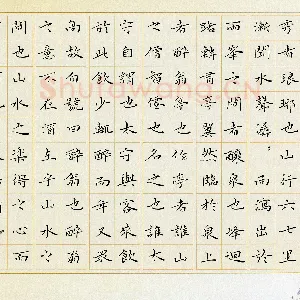 秀者琅琊也山行六七里
漸聞水聲潺潺而瀉出於
兩峯之間者釀泉也峯迴
路轉有亭翼然臨於泉上
者醉翁亭也作亭者誰山
之僧智僊也名之者誰太
守自謂也太守與客來飲
於此飲少輒醉而年又最
高故自號曰醉翁也醉翁
之意不在酒在乎山水之
間也山水之樂得之心而
Shufawang.CN